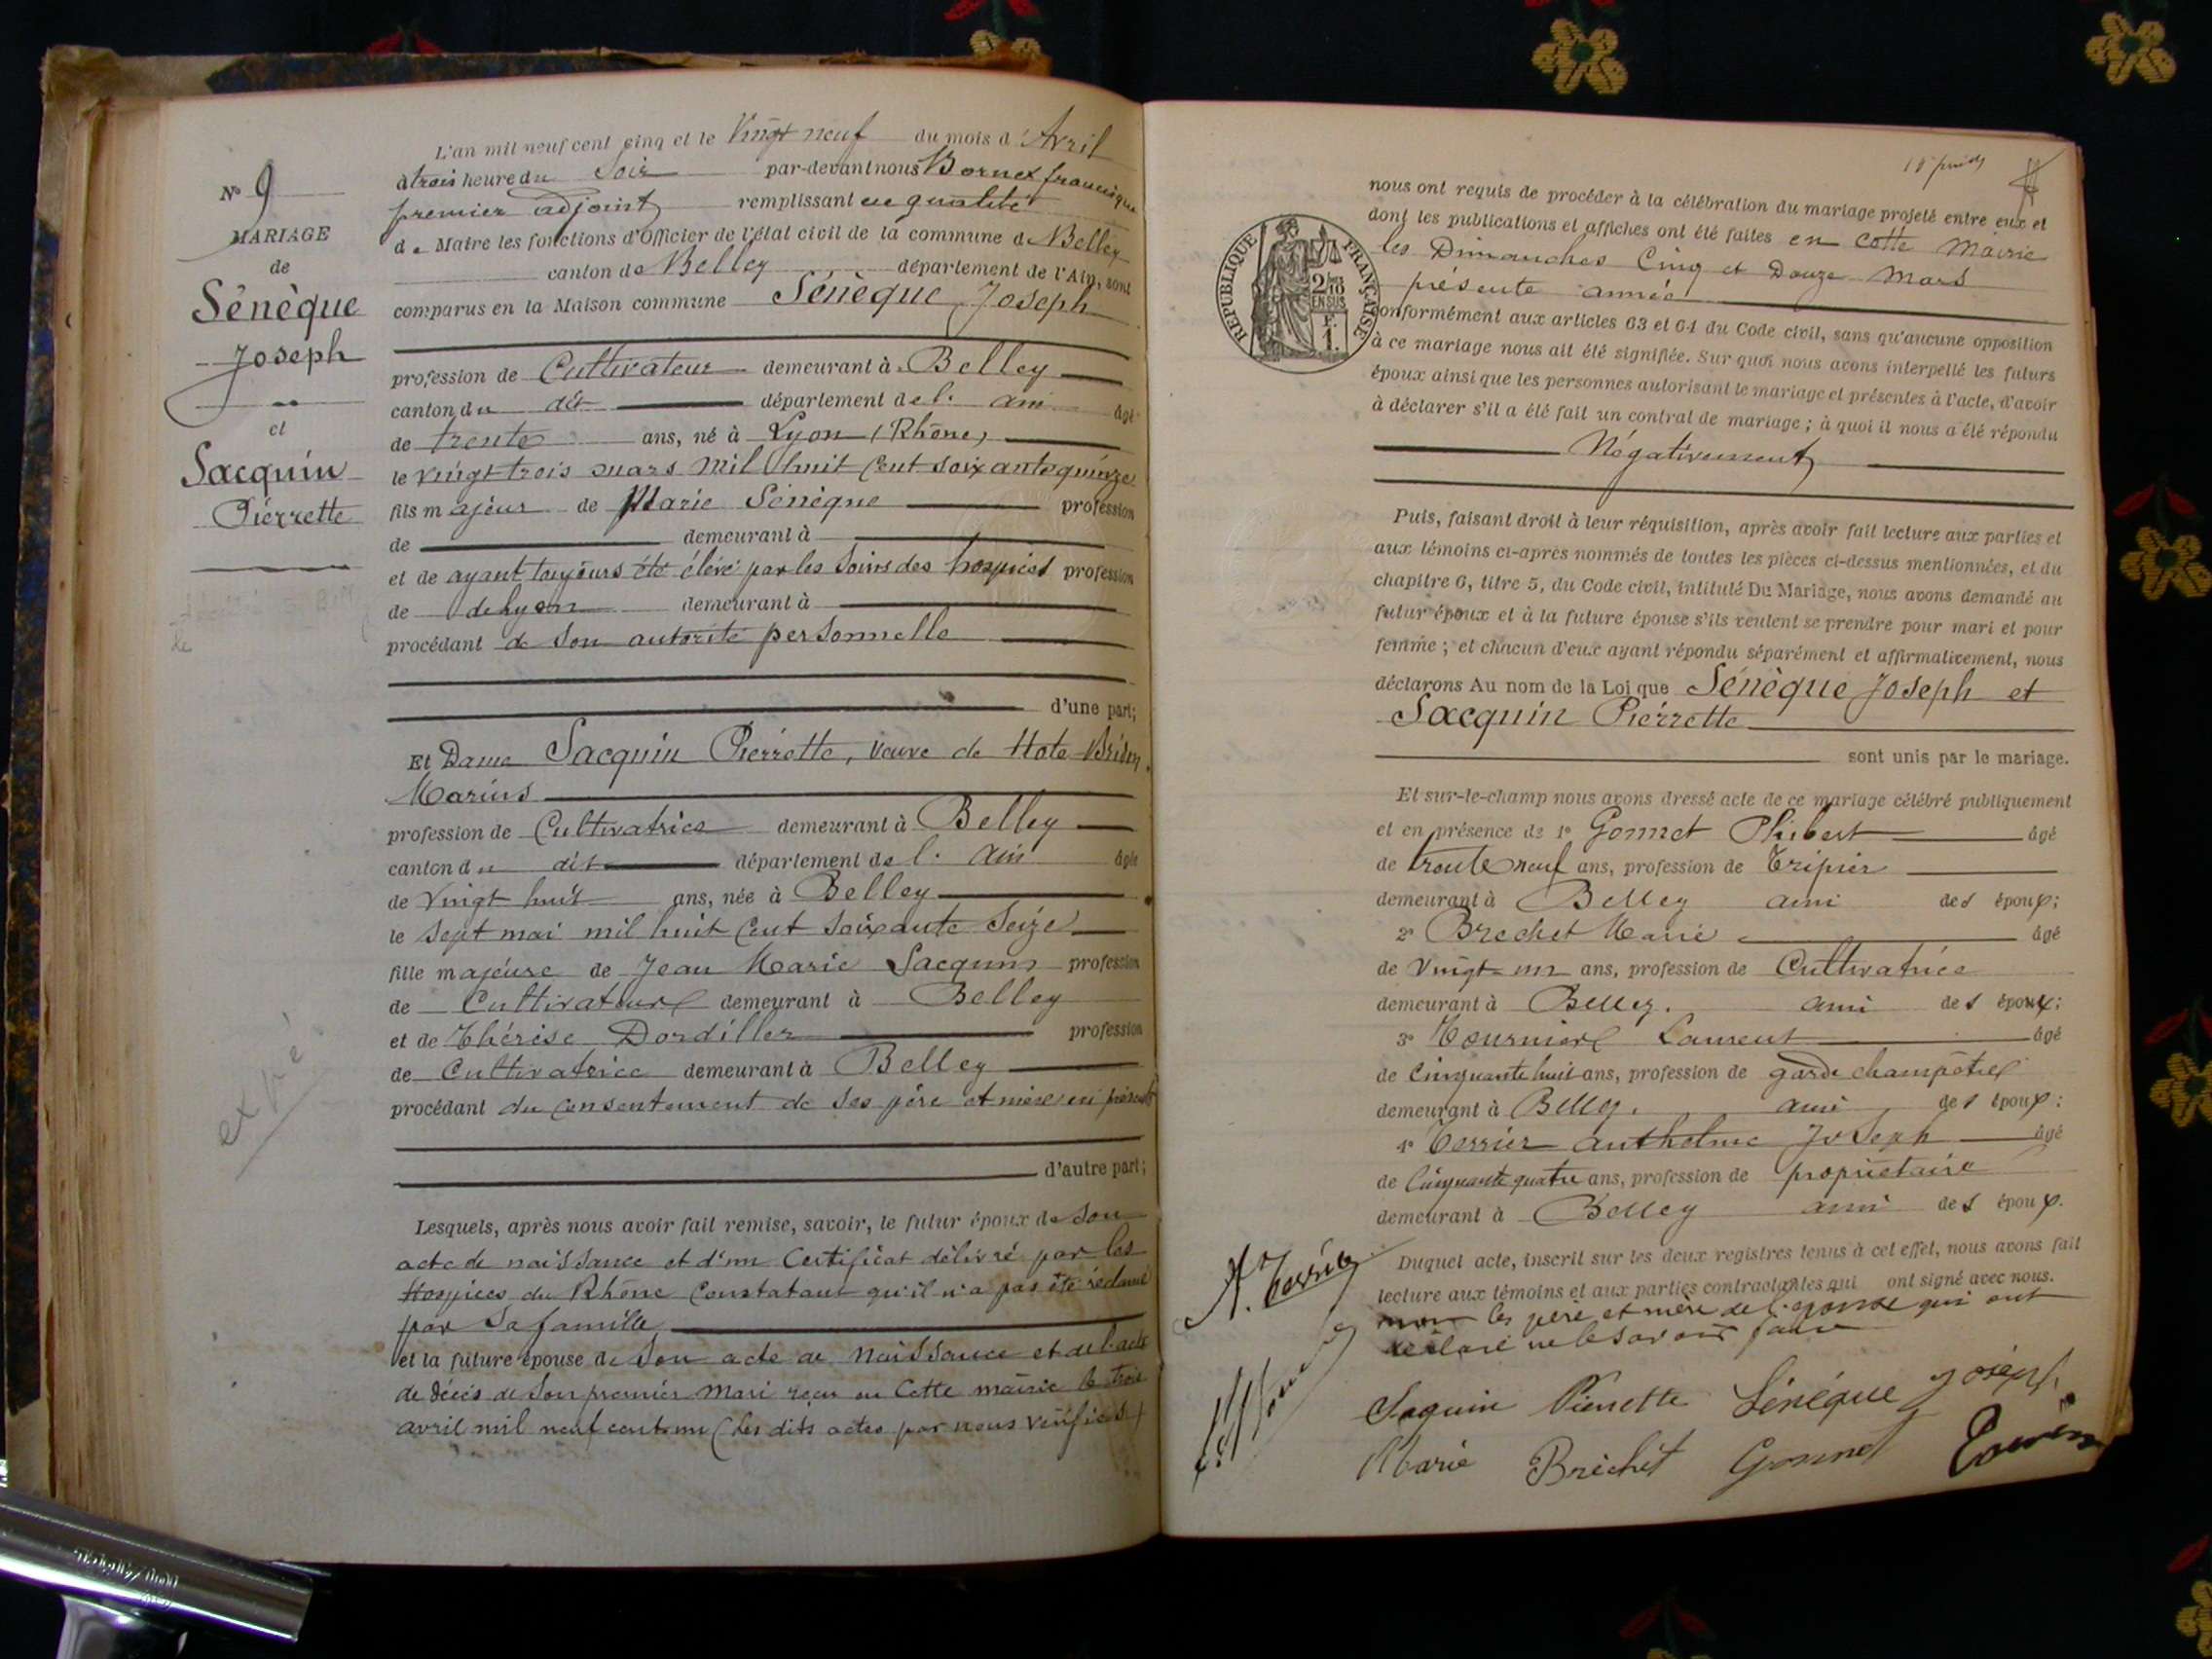 L'an mil neuf cent cinq et le Vingt neuf du mois d'Avril
à trois heure du Soir par-devant nous Bornex francisque
premier adjoint remplissant en qualité
de Maire les fonctions d'Officier de l'état civil de la commune de Belley
canton de Belley département de l'Ain, sont
comparus en la Maison commune Sénèque Joseph
N° 9
MARIAGE
de
Sénèque
Joseph
et
Sacquin
Pierrette
profession de Cultivateur demeurant à Belley
canton du dit département de l' ain âgé
de trente ans, né à Lyon (Rhône)
le vingt trois mars mil huit cent soixante quinze
fils majeur de Marie Sénèque profession
de demeurant à
et de ayant toujours été élévé par les soins des hospices profession
de de Lyon demeurant à
procédant de son autorité personnelle
d'une part;
Et Dame Sacquin Pierrette, veuve de Hote
Marius
profession de Cultivatrice demeurant à Belley
canton du dit département de l' ain âgée
de Vingt huit ans, née à Belley
le sept mai mil huit cent soixante seize
fille majeure de Jean Marie Sacquin profession
de Cultivateur demeurant à Belley
et de Thérèse Dordillor profession
de Cultivatrice demeurant à Belley
procédant du consentement de ses père et mère ici présents
d'autre part;
Lesquels, après nous avoir fait remise, savoir, le futur époux de son
acte de naissance et d'un Certificat délivré par les
Hospices du Rhône Constatant qu'il n'a pas été réclamé
par sa famille
et la future épouse de son acte de naissance et de l'acte
de décès de son premier mari reçu en cette mairie le trois
avril mil neuf cent un (les dits actes par nous vérifiés)
extré
nous ont requis de procéder à la célébration du mariage projeté entre eux et
dont les publications et affiches ont été faites en cette Mairie
les Dimanches Cinq et Douze Mars
présente année
REPUBLIQUE FRANÇAISE
2/10
EN SUS
F.
1.
conformément aux articles 63 et 64 du Code civil, sans qu'aucune opposition
à ce mariage nous ait été signifiée. Sur quoi nous avons interpellé les futurs
époux ainsi que les personnes autorisant le mariage et présentes à l'acte, d'avoir
à déclarer s'il a été fait un contrat de mariage; à quoi il nous a été répondu
Négativement
Puis, faisant droit à leur réquisition, après avoir fait lecture aux parties et
aux témoins ci-après nommés de toutes les pièces ci-dessus mentionnées, et du
chapitre 6, titre 5, du Code civil, intitulé Du Mariage, nous avons demandé au
futur époux et à la future épouse s'ils veulent se prendre pour mari et pour
femme; et chacun d'eux ayant répondu séparément et affirmativement, nous
déclarons Au nom de la Loi que Sénèque Joseph et
Sacquin Pierrette
sont unis par le mariage.
Et sur-le-champ nous avons dressé acte de ce mariage célébré publiquement
et en présence de 1° Gonnet Phibert âgé
de trente neuf ans, profession de Tripier
demeurant à Belley ami des époux;
2° Brechet Marie âgé
de vingt un ans, profession de Cultivatrice
demeurant à Belley. ami des époux;
3° Tournier Laurent âgé
de cinquante huit ans, profession de garde champêtre
demeurant à Belley. ami des époux:
4° Terrier anthelme Joseph âgé
de Cinquante quatre ans, profession de propriétaire
demeurant à Belley ami des époux.
Duquel acte, inscrit sur les deux registres tenus à cet effet, nous avons fait
lecture aux témoins et aux parties contractantes qui ont signé avec nous.
non les père et mère de l'épouse qui ont
déclaré ne le savoir faire
A. Terrier
Saquin Pierrette Sénéque Joseph
Marie Bréchet Gonnet